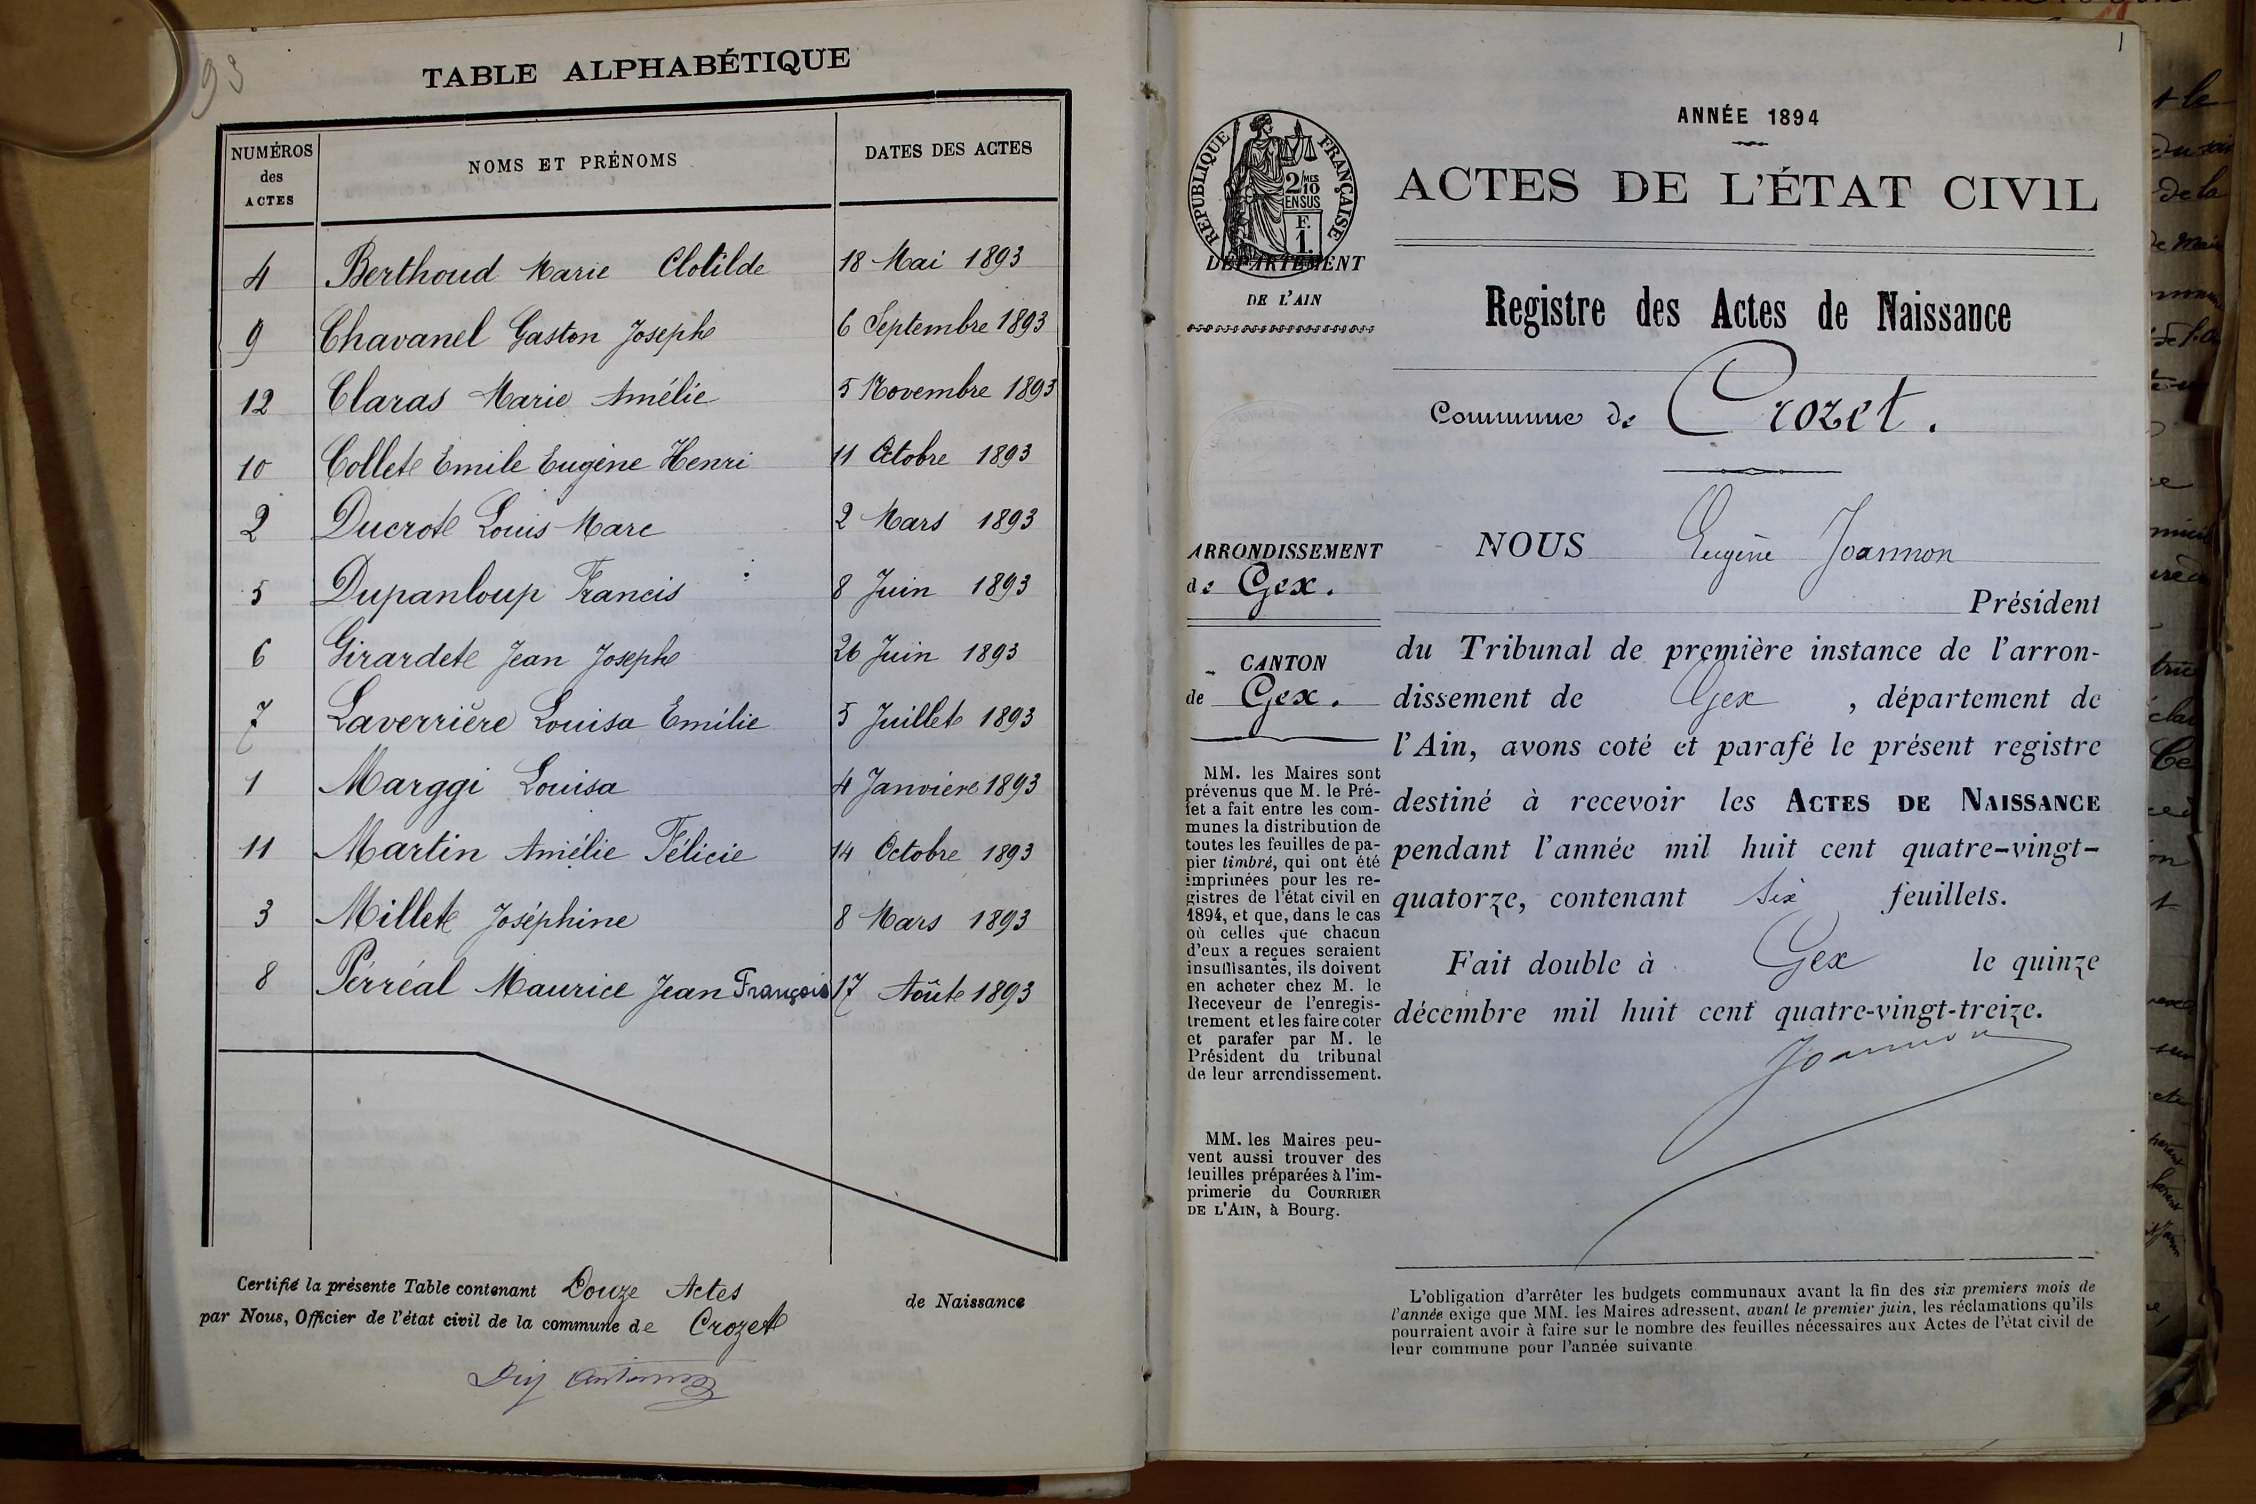 93
TABLE ALPHABÉTIQUE
NUMÉROS des ACTES NOMS ET PRÉNOMS DATES DES ACTES
4 Berthoud Marie Clotilde 18 Mai 1893
9 Chavanel Gaston Joseph 6 Septembre 1893
12 Claras Marie Amélie 5 Novembre 1893
10 Collet Emile Eugène Henri 11 Octobre 1893
2 Ducrot Louis Marc 2 Mars 1893
5 Dupanloup Francis 8 Juin 1893
6 Girardet Jean Joseph 26 Juin 1893
7 Laverrière Louisa Emélie 5 Juillet 1893
1 Marggi Louisa 4 Janvier 1893
11 Martin Amélie Félicie 14 Octobre 1893
3 Millet Joséphine 8 Mars 1893
8 Pérréal Maurice Jean François 17 Août 1893
Certifié la présente Table contenant Douze Actes de Naissance
par Nous, Officier de l'état civil de la commune de Crozet
1
ANNÉE 1894
ACTES DE L'ÉTAT CIVIL
RÉPUBLIQUE FRANÇAISE
2/MES 10
EN SUS
F.
1.
DÉPARTEMENT
DE L'AIN
Registre des Actes de Naissance
Commune de Crozet.
ARRONDISSEMENT
de Gex.
CANTON
de Gex.
MM. les Maires sont
prévenus que M. le Pré-
fet a fait entre les com-
munes la distribution de
toutes les feuilles de pa-
pier timbré, qui ont été
imprimées pour les re-
gistres de l'état civil en
1894, et que, dans le cas
où celles que chacun
d'eux a reçues seraient
insuffisantes, ils doivent
en acheter chez M. le
Receveur de l'enregis-
trement et les faire coter
et parafer par M. le
Président du tribunal
de leur arrondissement.
MM. les Maires peu-
vent aussi trouver des
feuilles préparées à l'im-
primerie du COURRIER
DE L'AIN, à Bourg.
NOUS Eugène Joannon
Président
du Tribunal de première instance de l'arron-
dissement de Gex, département de
l'Ain, avons coté et parafé le présent registre
destiné à recevoir les ACTES DE NAISSANCE
pendant l'année mil huit cent quatre-vingt-
quatorze, contenant six feuillets.
Fait double à Gex le quinze
décembre mil huit cent quatre-vingt-treize.
Joannon
L'obligation d'arrêter les budgets communaux avant la fin des six premiers mois de
l'année exige que MM. les Maires adressent, avant le premier juin, les réclamations qu'ils
pourraient avoir à faire sur le nombre des feuilles nécessaires aux Actes de l'état civil de
leur commune pour l'année suivante